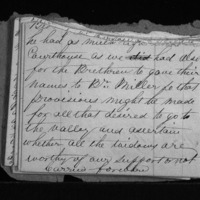 he had as much
Courthouse as we did had also
for the Brethren to gave their
names to Br. Miller so that
provisions might be made
for all that desired to go to
the valley and ascertain
whether all the widows are
worthy of our support & not